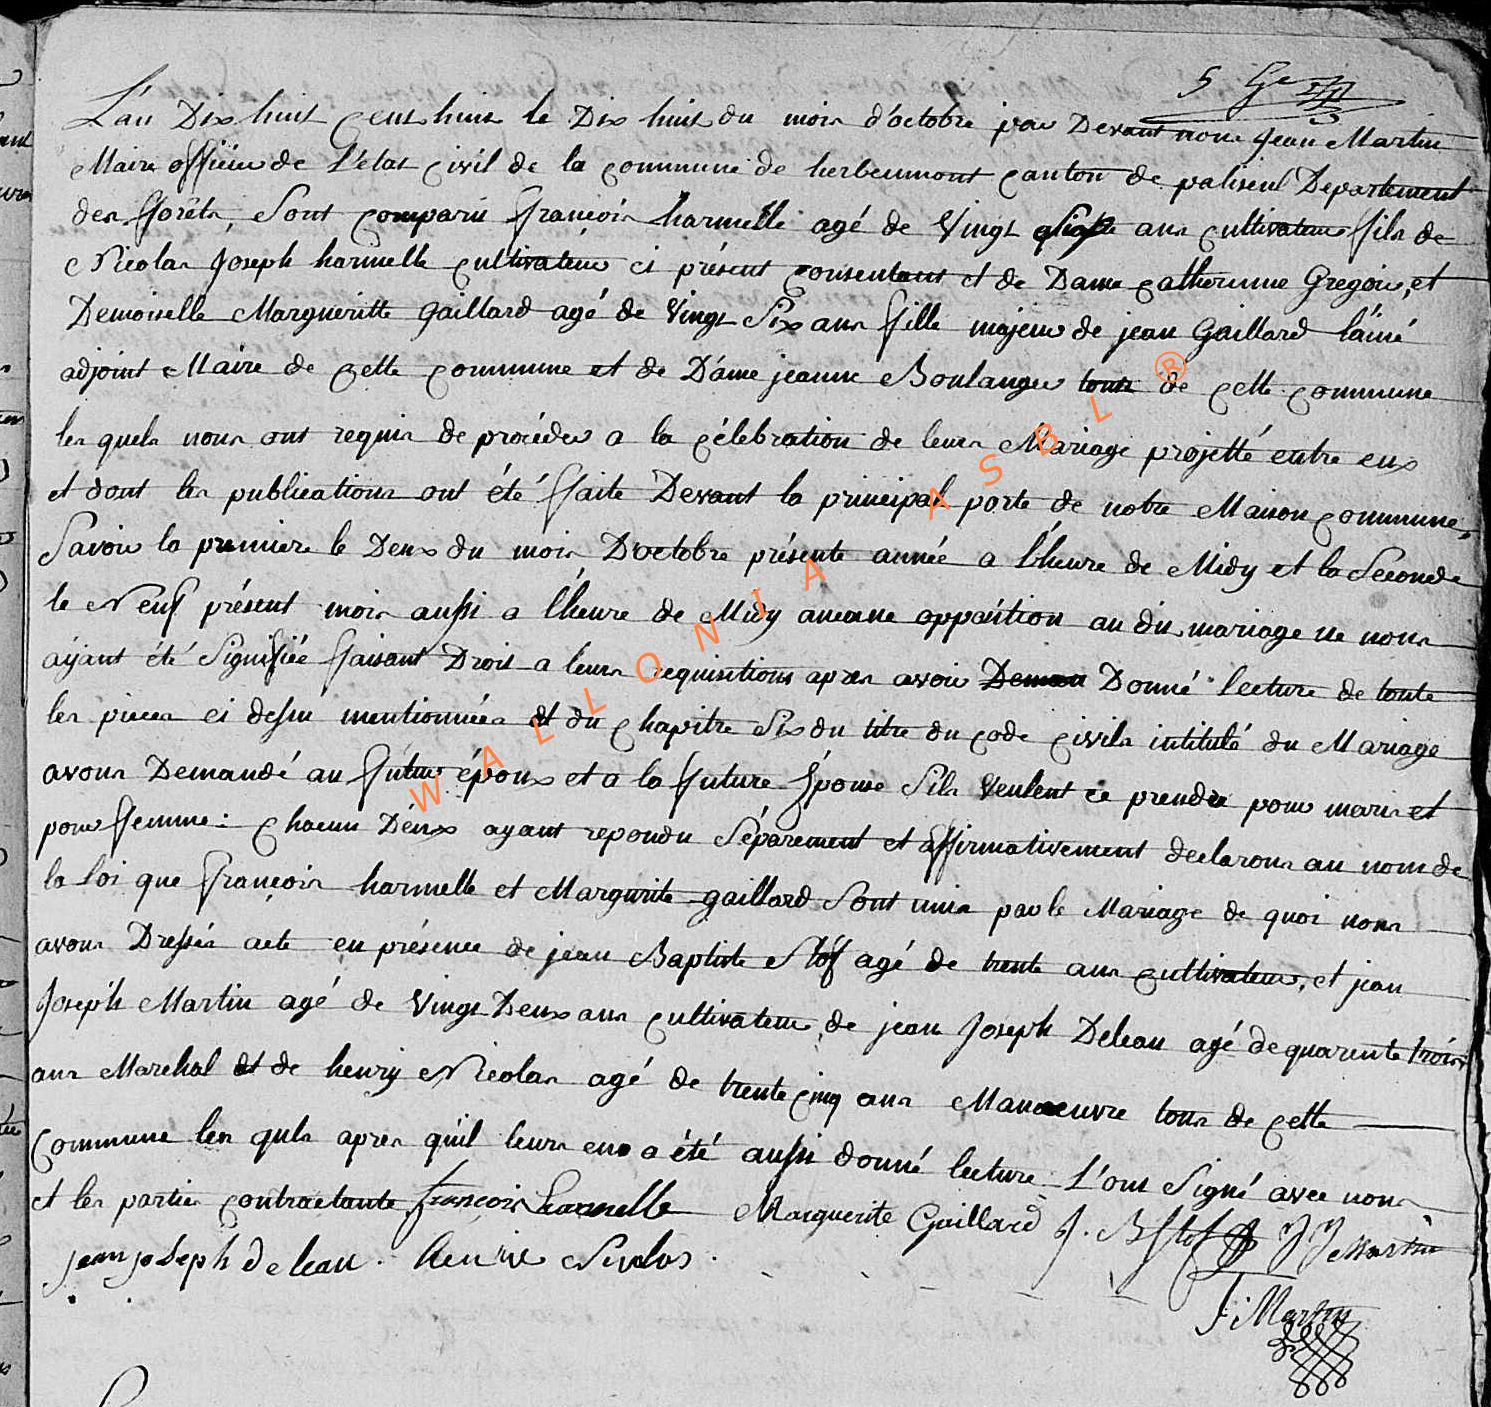 5 Ge
L'an Dix huit Cent huit le Dix huit du mois d'octobre par Devant nous Jean Martin
Maire officier de L'état Civil de la Commune de herbeumont Canton de paliseul Departement
des fforêts, Sont Comparu ffrançois harmelle agé de Vingt ans Cultivateur ffils de
Nicolas Joseph harmelle Cultivateur ci présent Consentant et de Dame Catherinne Gregoire, et
Demoiselle Margueritte Gaillard agé de Vingt Six ans ffille majeur de jean Gaillard l'ainé
adjoint Maire de Cette Commune et de Dáme jeanne Boulanger tous de Cette Commune
les quels nous ont requis de procéder a la Célébration de leurs Mariage projetté entre eux
et dont les publications ont été ffaite Devant la principal porte de notre Maison Commune,
Savoir la premiere le Deux du mois D'octobre présente année a l'heure de Midy et la Seconde
le Neuf présent mois aussi a l'heure de Midy aucune oppaition au dit mariage ne nous
ayant été Signifiée ffaisant Droit a leurs requisitions apres avoir Donné lecture de toute
les pieces ci dessu mentionnées et du Chapitre Six du titre du Code Civils intitulé du Mariage
avons Demandé au ffutur époux et a la ffuture Épouse S'ils Veulent ce prendre pour maris et
pour ffemme: Chacun D'éux ayant repondu Séparement et affirmativement declarons au nom de
la loi que ffrançois harmelle et Margurite gaillard Sont unis par le Mariage de quoi nous
avons Dressés acte en présence de jean Baptiste Slôf agé de trente ans Cultivateur, et jean
Joseph Martin agé de Vingt Deux ans Cultivateur, de jean Joseph Deleau agé de quarente trois
ans Marehal et de henry Nicolas agé de trente Cinq ans Manoeuvre tous de Cette
Commune les quls apres qu'il leurs en a été aussi donné lecture L'ont Signé avec nous
et les partie Contractante françois harmelle Marguerite Gaillard J. B Slof J J Martin
jean joseph deleau. henrie Nicolas.
J. Martin
WALLONIA ASBL ®